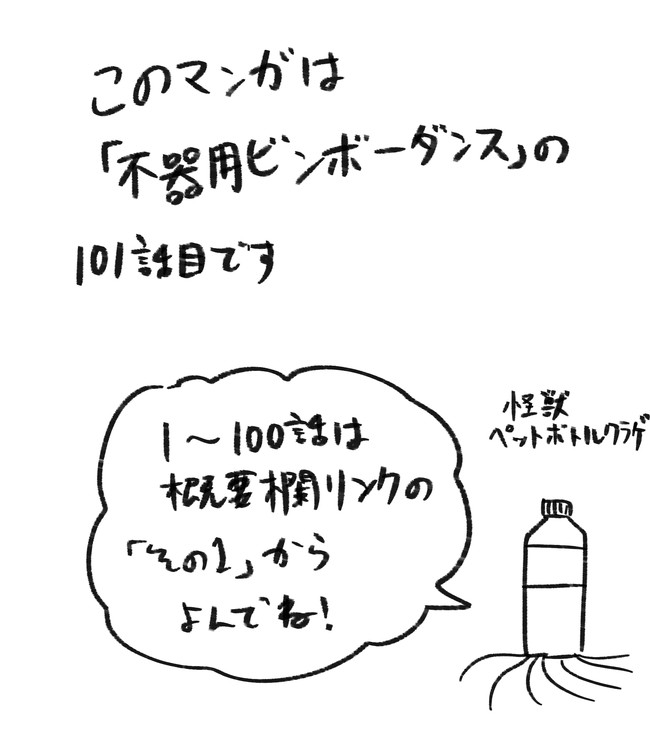 このマンガは
「不器用ビンボーダンス」の
101話目です
1〜100話は
概要欄リンクの
「その1」から
よんでね!
怪獣
ペットボトルクラゲ